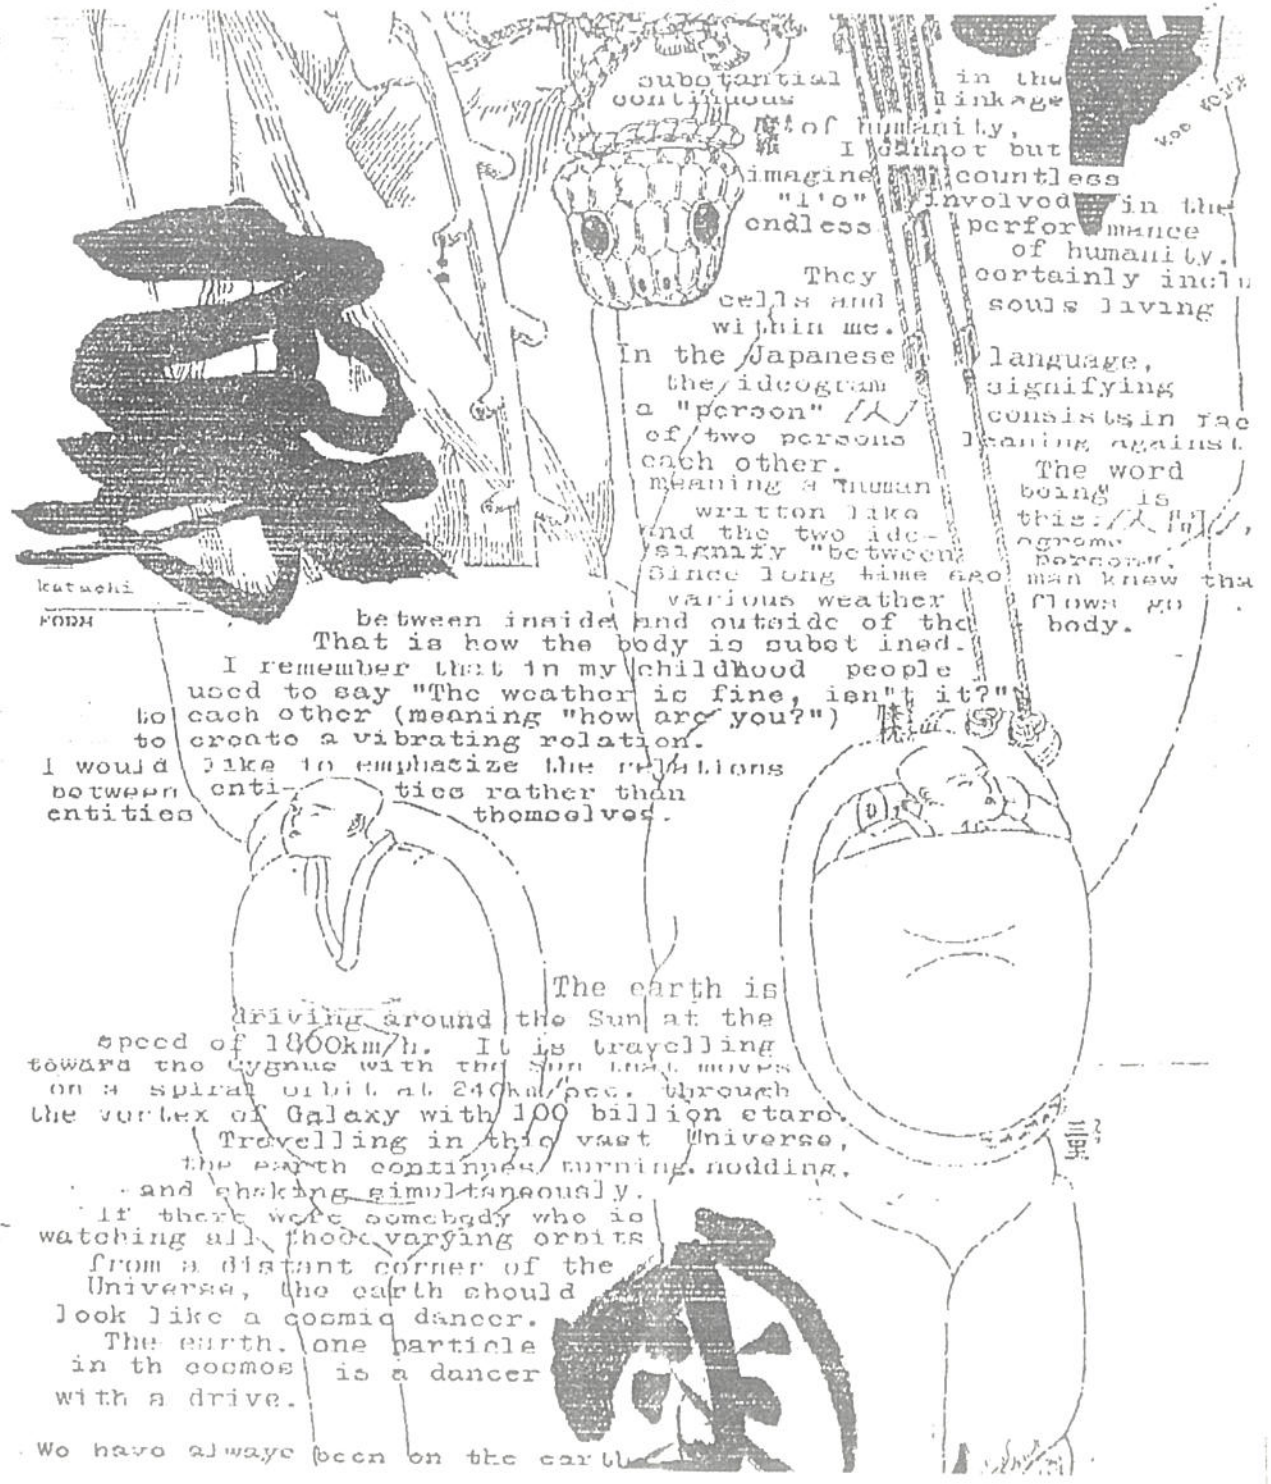 substantial in the
continuous linkage
of humanity,
I cannot but
imagine countless
"I's" involved in the
endless performance
of humanity.
They certainly inclu
cells and souls living
within me.
In the Japanese language,
the ideogram signifying
a "person" /人/ consists in fac
of two persons leaning against
each other. The word
meaning a "human being" is
written like this: /人間/,
and the two ideograms
signify "between persons".
Since long time ago man knew tha
various weather flows go
between inside and outside of the body.
That is how the body is subst ined.
I remember that in my childhood people
used to say "The weather is fine, isn"t it?"
to each other (meaning "how are you?")
to create a vibrating relation.
I would like to emphasize the relations
between enti- ties rather than
entities themselves.
katachi
FORM
The earth is
driving around the Sun at the
speed of 1800km/h. It is travelling
toward the Cygnus with the Sun that moves
on a spiral orbit at 240km/sec. through
the vortex of Galaxy with 100 billion stars.
Travelling in this vast Universe,
the earth continues turning, nodding,
and shaking simultaneously.
If there were somebody who is
watching all those varying orbits
from a distant corner of the
Universe, the earth should
look like a cosmic dancer.
The earth, one particle
in th cosmos is a dancer
with a drive.
We have always been on the earth